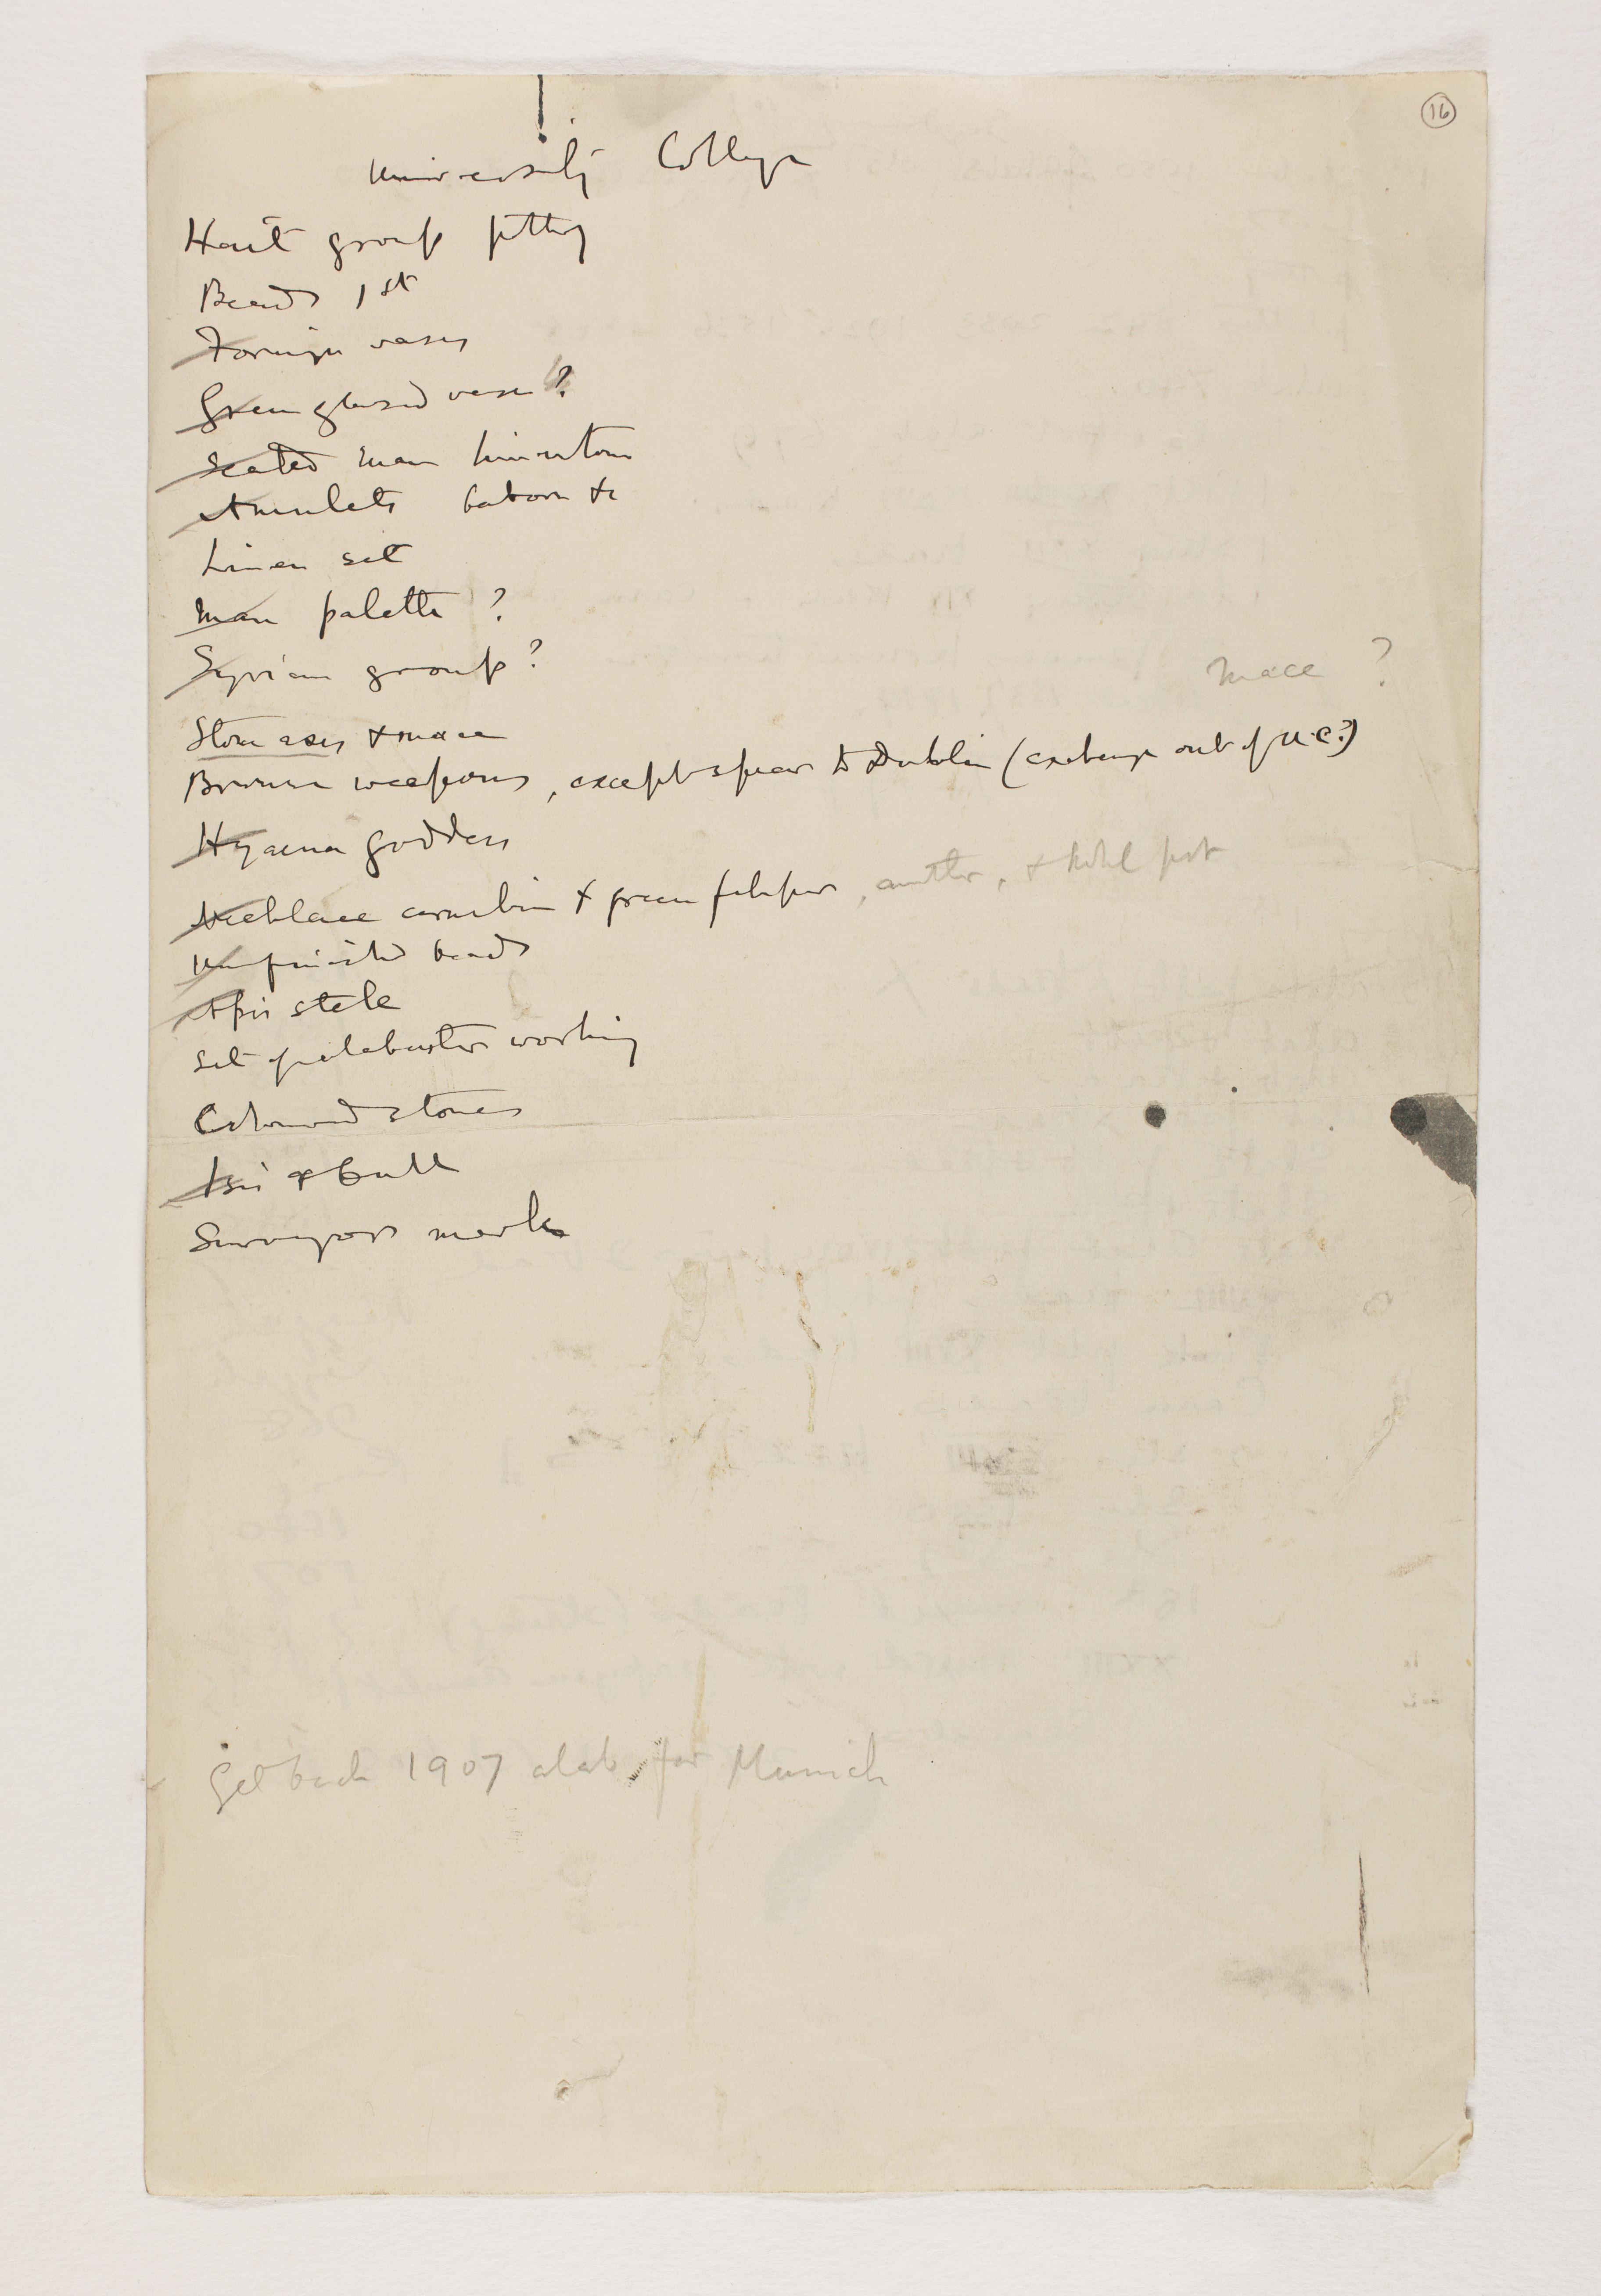 16
University College
Hait group pottery
Beads 1st
Foreign vases
Green glazed vase ?
Seated man limestone
Amulets baboon &c
Linen set
Man palette ?
Syrian group ?
mace ?
Stone axes & mace
Bronze weapons, except spear to Dublin (exchange out of U.C.?)
Hyaena goddess
Necklace carnelian & green felspar, another, & kohl pot
Unfinished beads
Apis stele
Set of alabaster working
Coloured stones
Isis & bull
Surveyors marks
Get back 1907 alab. for Munich